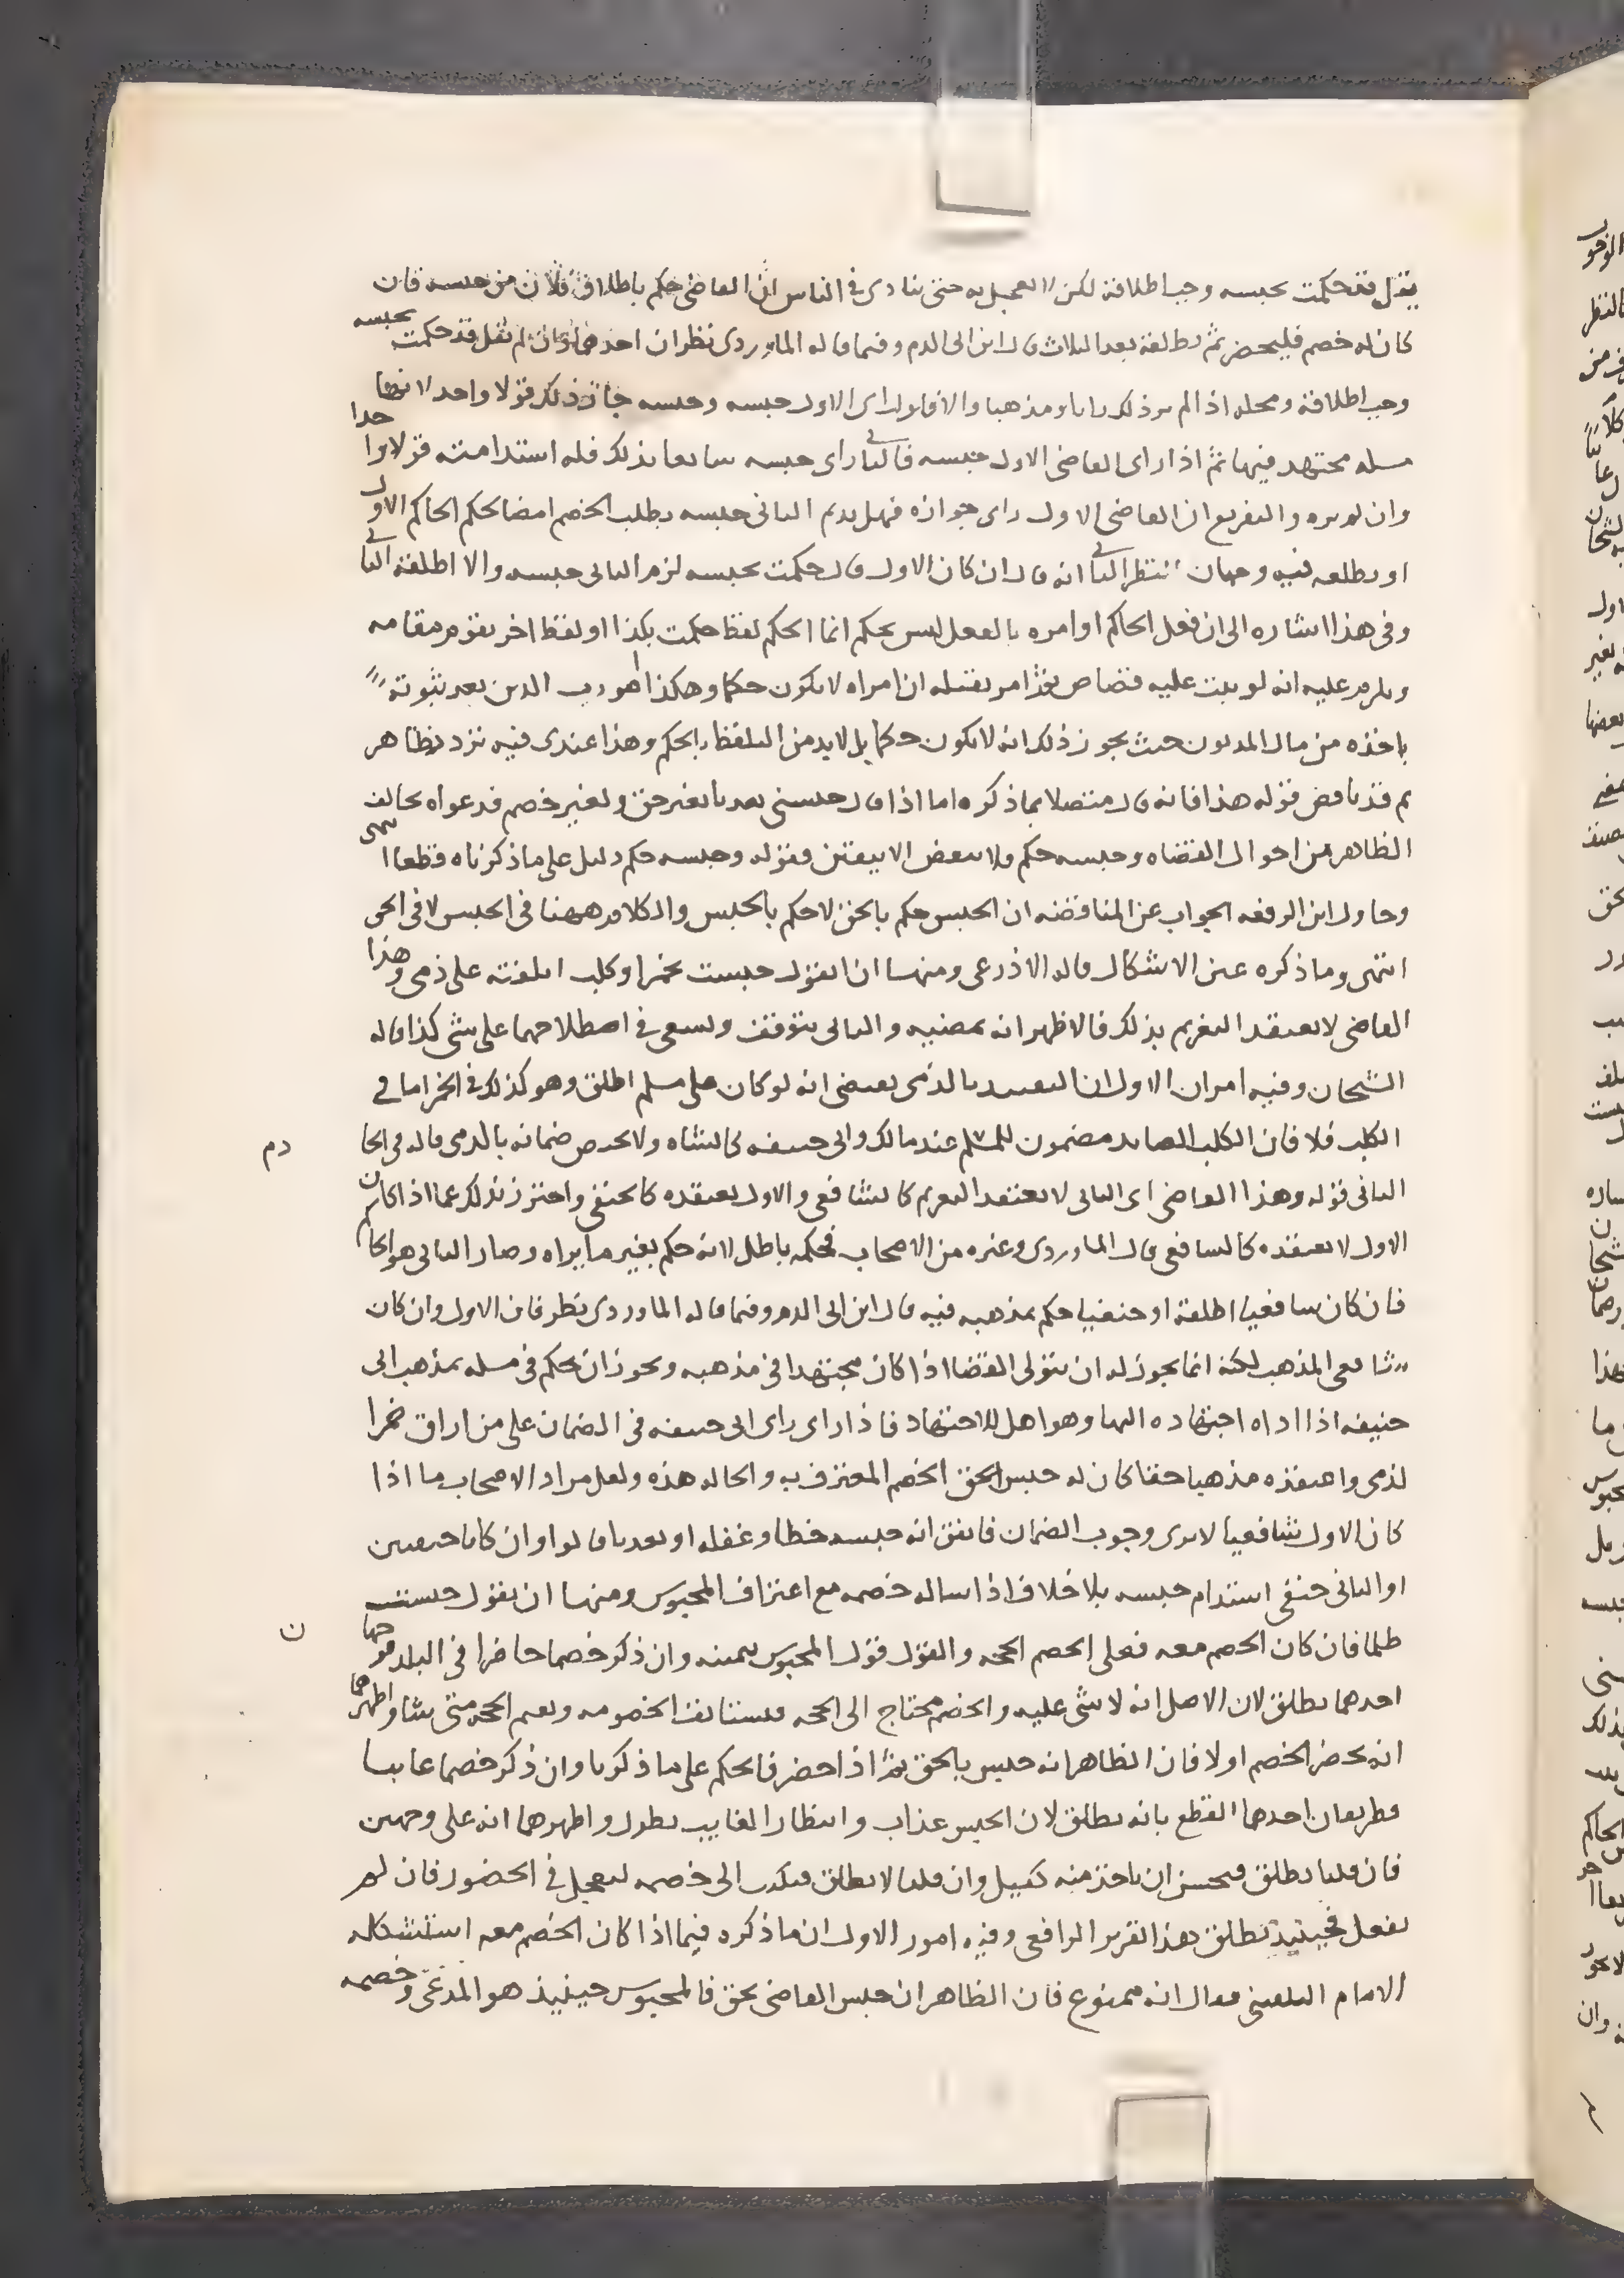 يقل قد حكمت بحبسه وجب اطلاقه لكن لا يعجل به حتى ينادى في الناس ان القاضي حكم باطلاق فلان من حبسه فان
كان له خصم فليحضر ثم يطلقه بعد الثلاث قال ابن ابي الدم وفيما قاله الماوردي نظر ان احدهما وان لم يقل قد حكمت بحبسه
وجب اطلاقه ومحله اذا لم ير ذلك مذهبا والا فان راى الاول حبسه وحبسه جاز ذلك قولا واحدا لانها
مسله مجتهد فيها ثم اذا راى القاضي الاول حبسه فالثاني ان راى حبسه سابعا بذلك فله استدامته قولا واحدا
وان لم يره والتفريع ان القاضي الاول راى جوازه فهل يديم الثاني حبسه بطلب الخصم امضا لحكم الحاكم الاول
او يطلقه فيه وجهان ينتظر الثاني انه قال ان كان الاول قال حكمت بحبسه لزم الثاني حبسه والا اطلقه الثاني
وفي هذا اشاره الى ان فعل الحاكم او امره بالفعل ليس بحكم انما الحكم لفظ حكمت بكذا او لفظ اخر يقوم مقامه
ويلزم عليه انه لو ثبت عليه قصاص ثم امر بقتله ان امراه لا يكون حكما وهكذا امر رب الدين بعد ثبوته
باخذه من مال المديون حيث يجوز ذلك انه لا يكون حكما بل لا بد من التلفظ بالحكم وهذا عندي فيه تردد ظاهر
ثم قد ناقض قوله هذا فانه قال متصلا بما ذكره اما اذا قال حبسني تعديا بغير حق ولغير خصم فدعواه تخالف
الظاهر من احوال القضاه وحبسه حكم فلا ينقض الا بيقين فقوله وحبسه حكم دليل على ما ذكرناه قطعا انتهى
وحاول ابن الرفعه الجواب عن المناقضه ان الحبس حكم بالحق لا حكم بالحبس والكلام ههنا في الحبس لا في الحق
انتهى وما ذكره عين الاشكال قاله الاذرعي ومنها ان يقول حبست بخمر او كلب اتلفته على ذمي وهذا
القاضي لا يعتقد التغريم بذلك فالاظهر انه يمضيه والثاني يتوقف ويسعى في اصطلاحهما على شي كذا قاله
الشيخان وفيه امران الاول ان التقييد بالذمي يقتضي انه لو كان على مسلم اطلق وهو كذلك في الخمر اما في
الكلب فلا فان الكلب الصايد مضمون للمسلم عند مالك وابي حنيفه كالشاه ولا يختص ضمانه بالذمي قاله في الخادم
الثاني قوله وهذا القاضي اي الثاني لا يعتقد التغريم كالشافعي والاول يعتقده كالحنفي واحترز بذلك عما اذا كان
الاول لا يعتقده كالشافعي قال الماوردي وغيره من الاصحاب فحكمه باطل لانه حكم بغير ما يراه وصار الثاني هو الحاكم
فان كان شافعيا اطلقه او حنفيا حكم بمذهبه فيه قال ابن ابي الدم وفيما قاله الماوردي نظر فان الاول وان كان
شافعي المذهب لكنه انما يجوز له ان يتولى القضا اذا كان مجتهدا في مذهبه ويجوز ان يحكم في مسله بمذهب ابي
حنيفه اذا اداه اجتهاده اليها وهو اهل للاجتهاد فاذا راى راى ابي حنيفه في الضمان على من اراق خمرا
لذمي واعتقده مذهبا حقا كان له حبس الحق الخصم المعترف به والحاله هذه ولعل مراد الاصحاب ما اذا
كان الاول شافعيا لا يرى وجوب الضمان فاتفق انه حبسه خطا وغفله او تعديا قالوا وان كانا حنفيين
او الثاني حنفي استدام حبسه بلا خلاف اذا ساله خصمه مع اعتراف المحبوس ومنها ان يقول حبست
ظلما فان كان الخصم معه فعلى الخصم الحجه والقول قول المحبوس بيمينه وان ذكر خصما حاضرا في البلد فوجهان
احدهما يطلق لان الاصل انه لا شي عليه والخصم محتاج الى الحجه فيستانف الخصومه ويقيم الحجه متى شا واظهرهما
انه يحضر الخصم اولا فان الظاهر انه حبس بالحق ثم اذا حضر فالحكم على ما ذكرنا وان ذكر خصما غايبا
فطريقان احدهما القطع بانه يطلق لان الحبس عذاب وانتظار الغايب يطول واظهرهما انه على وجهين
فان قلنا يطلق فيحسن ان ياخذ منه كفيل وان قلنا لا يطلق فيكتب الى خصمه ليعجل في الحضور فان لم
يفعل فحينيذ يطلق هذا تقرير الرافعي وفيه امور الاول ان ما ذكره فيما اذا كان الخصم معه استشكله
الامام البلقيني فقال انه ممنوع فان الظاهر ان حبس القاضي بحق فالمحبوس حينيذ هو المدعي وخصمه